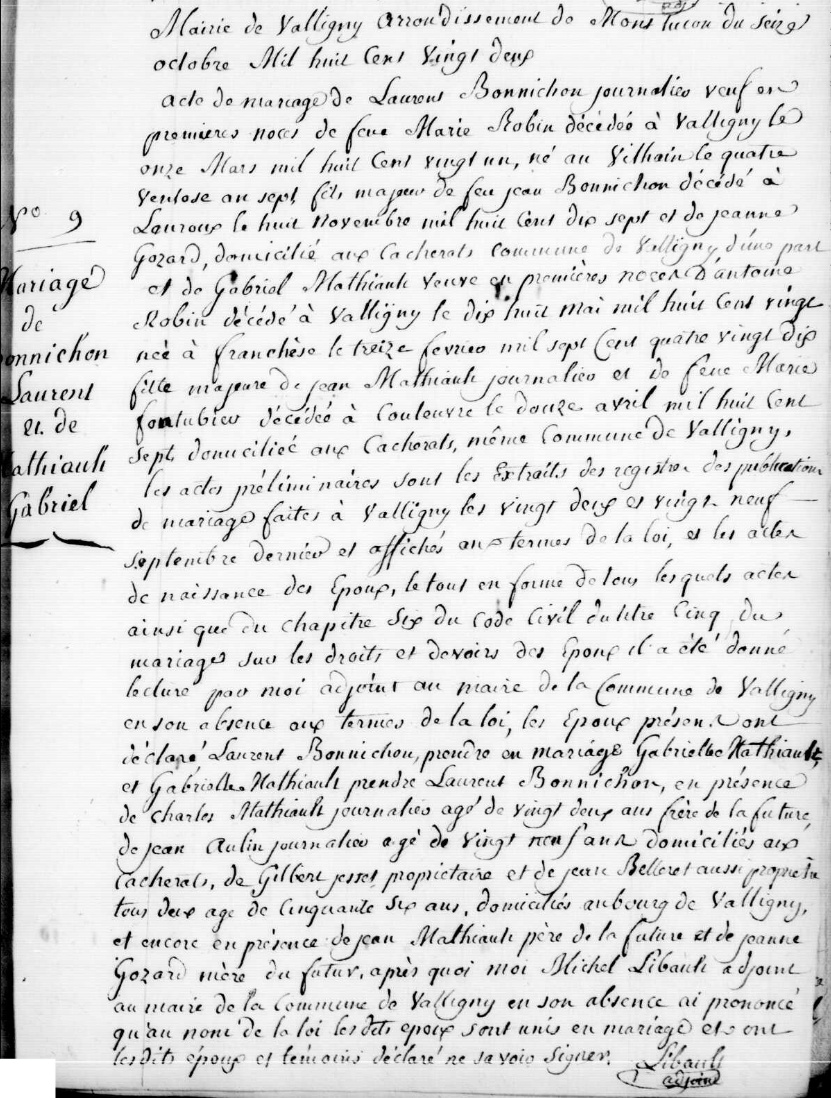 Mairie de Valligny arrondissement de Mons lucon du seize
octobre Mil huit Cent Vingt deux
acte de mariage de Laurent Bonnichon journalier veuf en
premieres noces de feue Marie Robin décédée à Valligny le
onze Mars mil huit Cent vingt un, né au Vilhain le quatre
Ventose an sept fils majeur de feu jean Bonnichon décédé à
N° 9
Lauroux le huit Novembre mil huit Cent dix sept et de jeanne
Gozard, domicilié aux Cacherats commune de Valligny d'une part
Mariage
et de Gabriel Mathiault veuve en premières noces d'antoine
de
Robin décédé à Valligny le dix huit mai mil huit Cent vingt
Bonnichon
née à franchèse le treize fevrier mil sept Cent quatre vingt dix
Laurent
fille majeure de jean Mathiault journalier et de feue Marie
et de
fontubier décédée à Couleuvre le douze avril mil huit Cent
Mathiault
sept domiciliée aux Cacherats, même Commune de Valligny,
Gabriel
les actes préliminaires sont les Extraits des registres des publications
de mariage faites à Valligny les vingt deux et vingt neuf
septembre dernier et affichés aux termes de la loi, et les actes
de naissance des Epoux, le tout en forme de tous lesquels actes
ainsi que du chapitre Six du Code Civil du titre Cinq du
mariage sur les droits et devoirs des Epoux il a été donné
lecture par moi adjoint au maire de la Commune de Valligny
en son absence aux termes de la loi, les Epoux présent ont
déclaré Laurent Bonnichon, prendre en mariage Gabrielle Mathiault,
et Gabrielle Mathiault prendre Laurent Bonnichon, en présence
de Charles Mathiault journalier agé de vingt deux ans frère de la future,
de jean Aulin journalier agé de Vingt neuf ans domiciliés aux
Cacherats, de Gilbert jesset propriétaire et de jean Belleret aussi propriétre
tous deux age de Cinquante Six ans, domiciliés au bourg de Valligny,
et encore en présence de jean Mathiault père de la future et de jeanne
Gozard mère du futur, après quoi moi Michel Libault adjoint
au maire de la Commune de Valligny en son absence ai prononcé
qu'au nom de la loi lesdits epoux sont unis en mariage et ont
lesdits époux et témoins déclaré ne savoir Signer.
Libault
adjoint